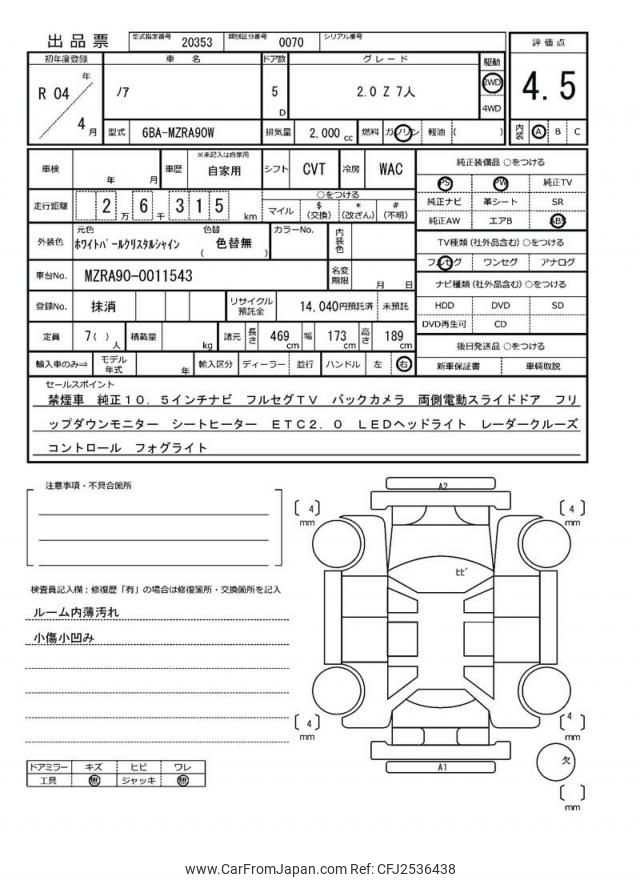 出品票
型式指定番号 20353 類別区分番号 0070 シリアル番号
初年度登録 車名 ドア数 グレード 駆動 評価点
R 04 年 4 月 ノア 5 D 2.0 Z 7人 2WD 4WD 4.5
型式 6BA-MZRA90W 排気量 2,000 cc 燃料 ガソリン 軽油 ( ) 内装 A B C
車検 年 月 車歴 ※未記入は自家用 自家用 シフト CVT 冷房 WAC
純正装備品 ○をつける
PS PW 純正TV
純正ナビ 革シート SR
純正AW エアB ABS
走行距離 2 万 6 千 3 1 5 km
○をつける
マイル $ (交換) * (改ざん) # (不明)
外装色 元色 ホワイトパールクリスタルシャイン 色替 ( 色替無 ) カラーNo. 内装色
TV種類 (社外品含む) ○をつける
フルセグ ワンセグ アナログ
車台No. MZRA90-0011543 名変期限 月 日
ナビ種類 (社外品含む) ○をつける
HDD DVD SD
DVD再生可 CD
登録No. 抹消 リサイクル預託金 14,040円預託済 未預託
定員 7 ( ) 人 積載量 kg 諸元 長さ 469 cm 幅 173 cm 高さ 189 cm
後日発送品 ○をつける
新車保証書 車輌取説
輸入車のみ⇒ モデル年式 年 輸入区分 ディーラー 並行 ハンドル 左 右
セールスポイント
禁煙車 純正10.5インチナビ フルセグTV バックカメラ 両側電動スライドドア フリ
ップダウンモニター シートヒーター ETC2.0 LEDヘッドライト レーダークルーズ
コントロール フォグライト
注意事項・不具合箇所
検査員記入欄：修復歴「有」の場合は修復箇所・交換箇所を記入
ルーム内薄汚れ
小傷小凹み
ドアミラー キズ ヒビ ワレ
工具 無 ジャッキ 無
A2
4 mm
4 mm
ヒビ
4 mm
4 mm
A1
欠
mm
www.CarFromJapan.com Ref: CFJ2536438